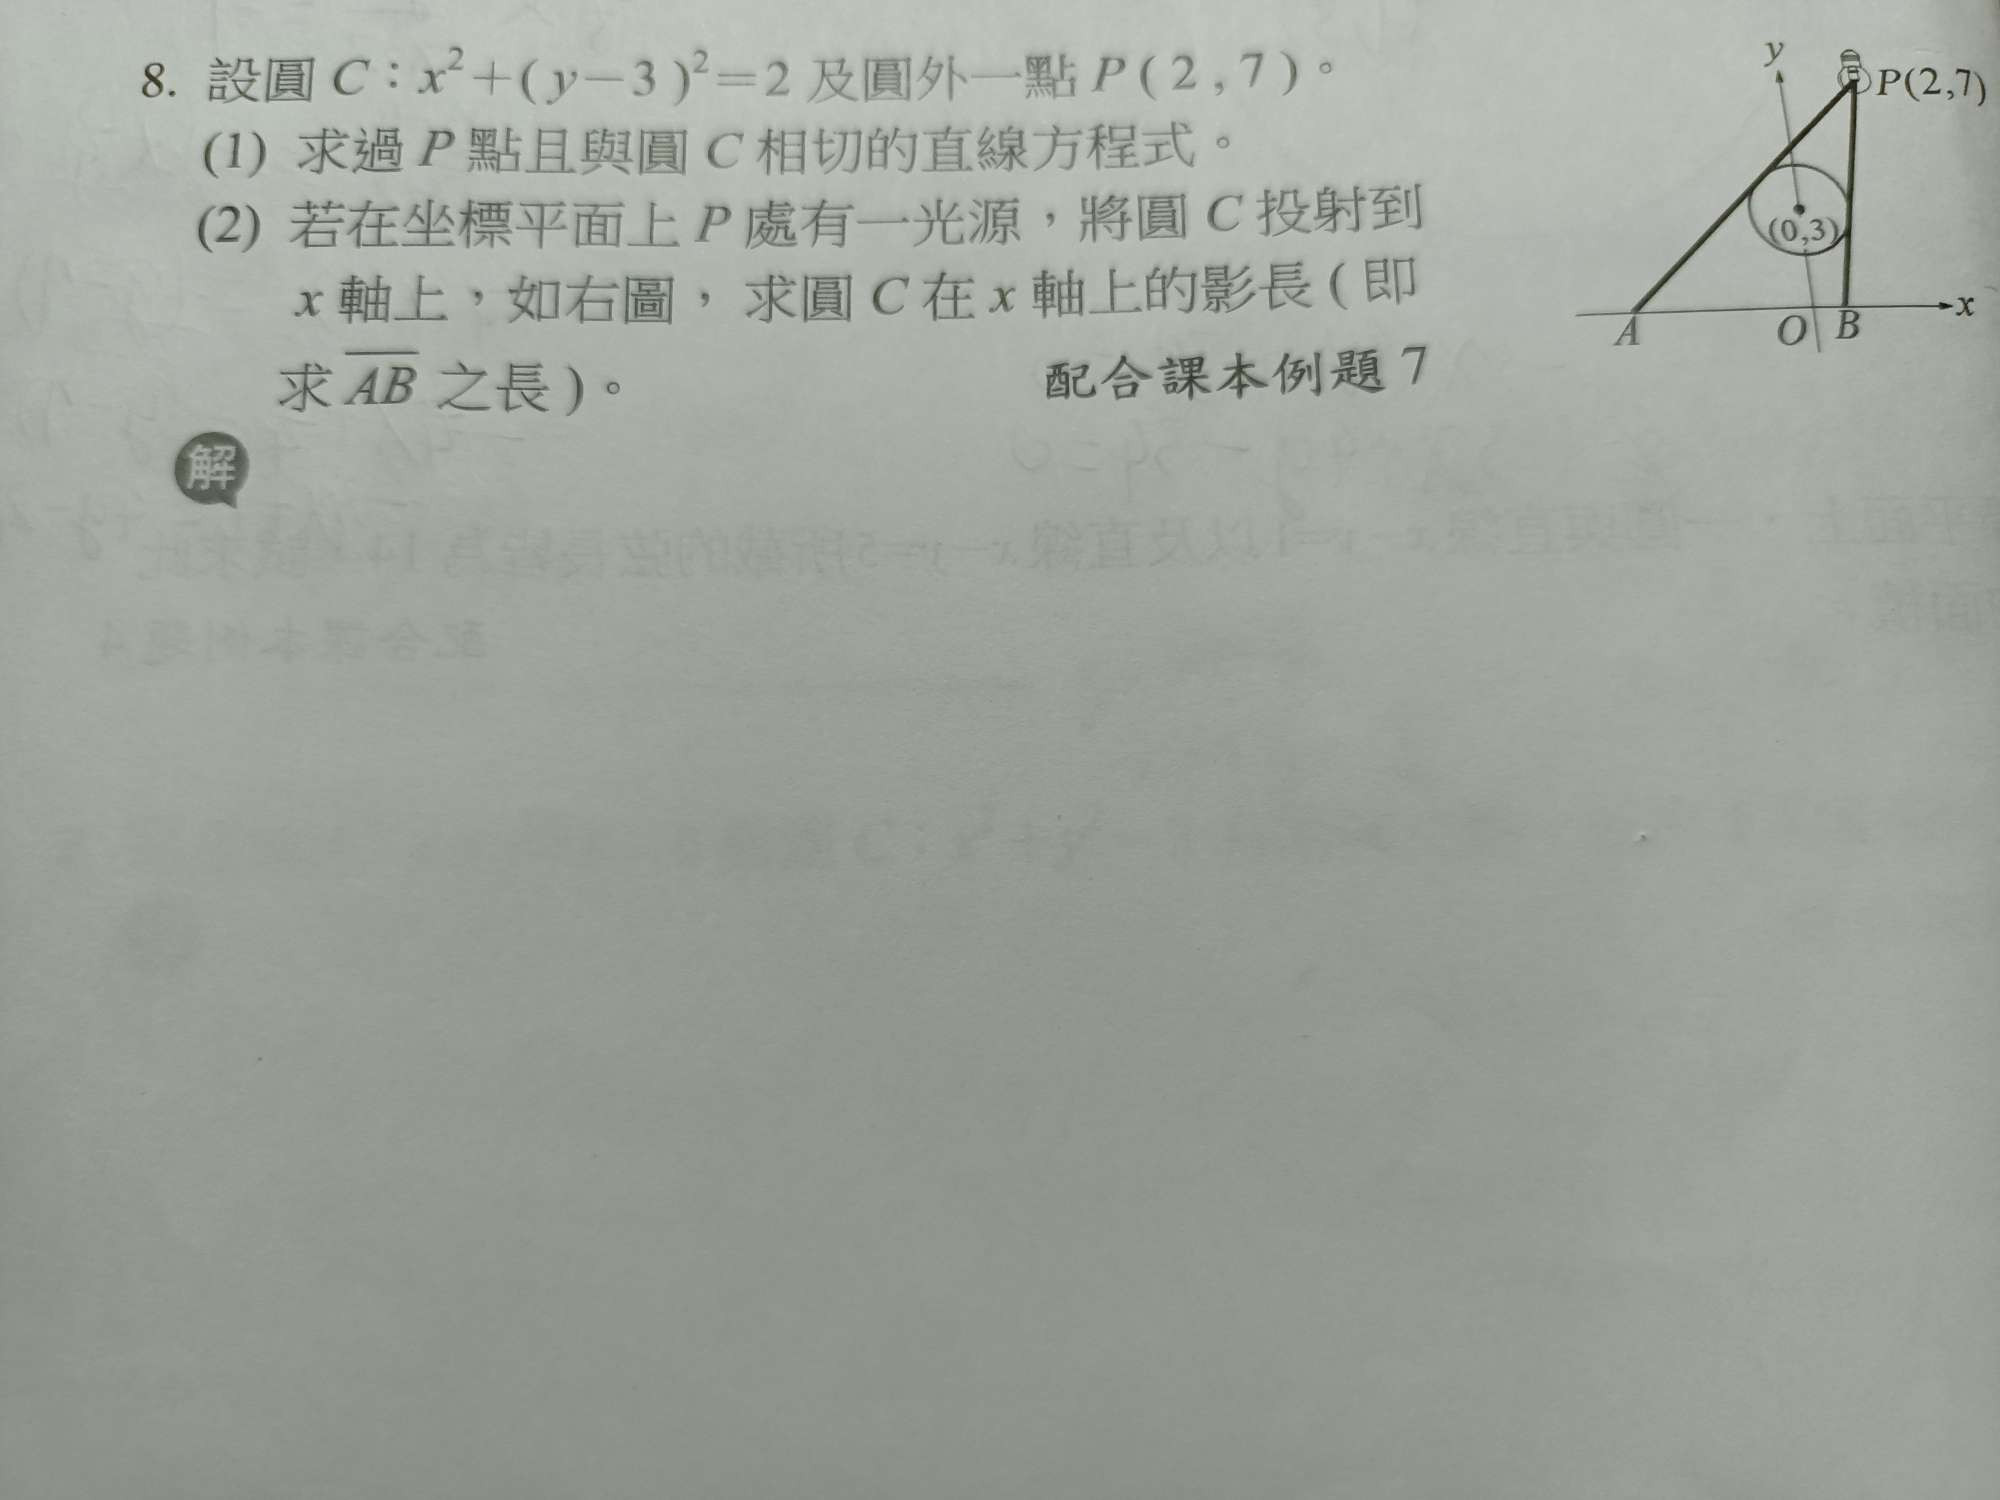 8. 設圓 C：x²+(y−3)²=2 及圓外一點 P(2,7)。
(1) 求過 P 點且與圓 C 相切的直線方程式。
(2) 若在坐標平面上 P 處有一光源，將圓 C 投射到
x 軸上，如右圖，求圓 C 在 x 軸上的影長(即
求 A̅B̅ 之長)。
配合課本例題 7
解
y
P(2,7)
(0,3)
A
O
B
x